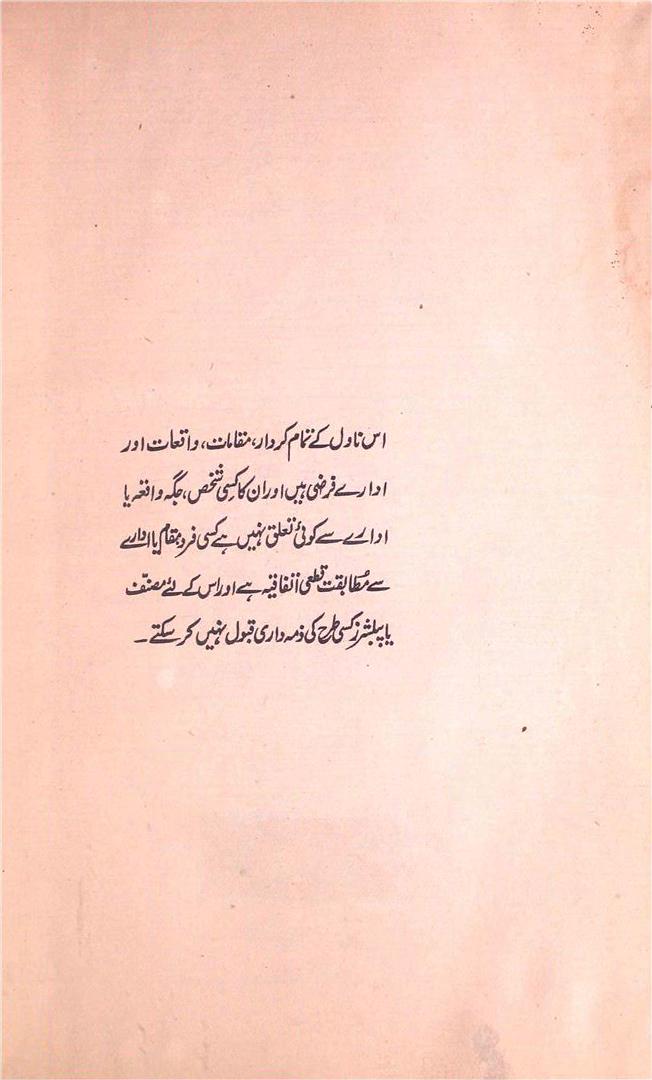 اس ناول کے تمام کردار، مقامات، واقعات اور
ادارے فرضی ہیں اور ان کا کسِی شخص، جگہ واقعہ یا
ادارے سے کوئی تعلق نہیں ہے کسی فرد، مقام یا ادارے
سے مُطابقت قطعی اتفاقیہ ہے اور اس کے لئے مصنّف
یا پبلشرز کسی طرح کی ذمہ داری قبول نہیں کر سکتے۔